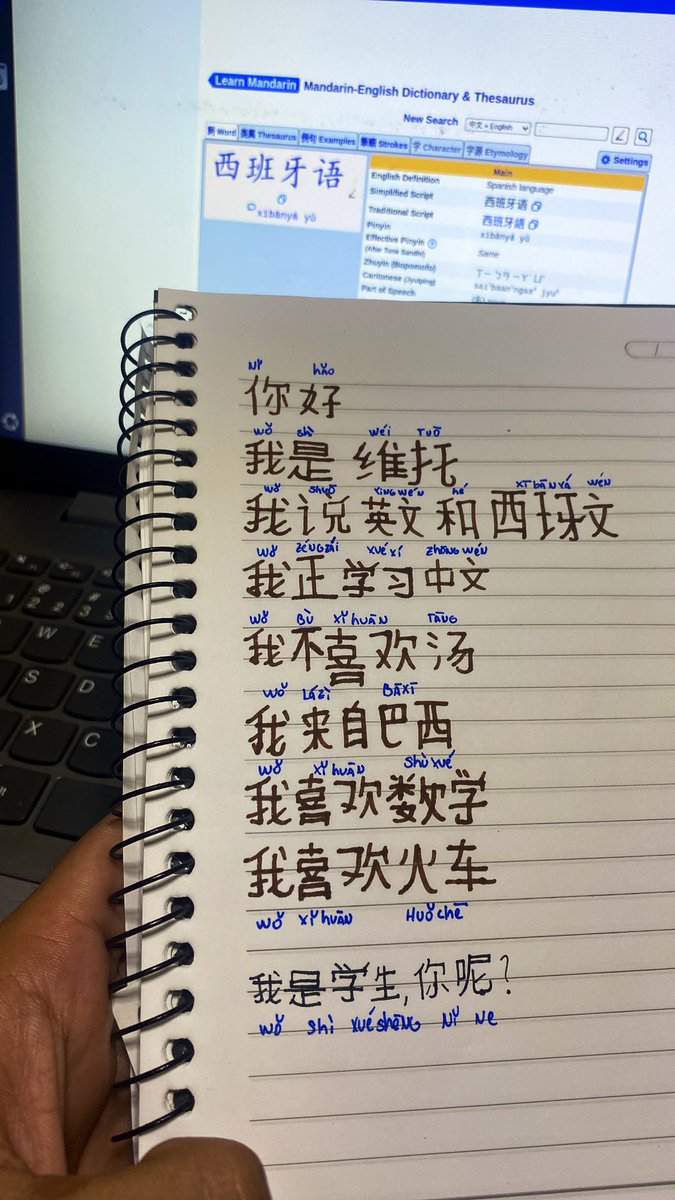 Learn Mandarin Mandarin-English Dictionary & Thesaurus
New Search 中文 > English
例 Word Thesaurus 例句 Examples Strokes 字 Character 字源 Etymology Settings
西班牙语
xībānyá yǔ
Main
English Definition Spanish language
Simplified Script 西班牙语
Traditional Script 西班牙語
Pinyin xībānyá yǔ
Effective Pinyin Same
(After Tone Sandhi)
Zhuyin (Bopomofo) ㄒㄧ ㄅㄢ ㄧㄚˊ ㄩˇ
Cantonese (Jyutping) sai1 baan1 ngaa4 jyu5
Part of Speech
Nǐ hǎo
你好
wǒ shì wéi Tuō
我是 维托
wǒ shuō yīng wén hé xībānyá wén
我说英文和西班牙文
wǒ zéngzái xuéxí zhōng wén
我正学习中文
wǒ Bù xǐhuān Tāng
我不喜欢汤
wǒ Lázì Bāxī
我来自巴西
wǒ xǐhuān shùxué
我喜欢数学
我喜欢火车
wǒ xǐhuān Huǒchē
我是学生,你呢?
wǒ shì xuéshēng Nǐ Ne
W E
S D
X C